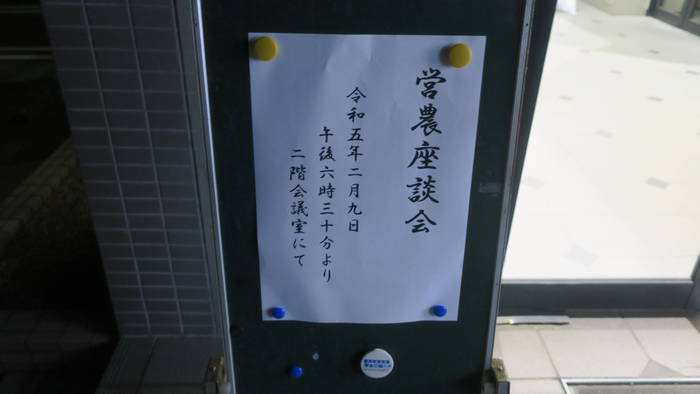 営農座談会
令和五年二月九日
午後六時三十分より
二階会議室にて